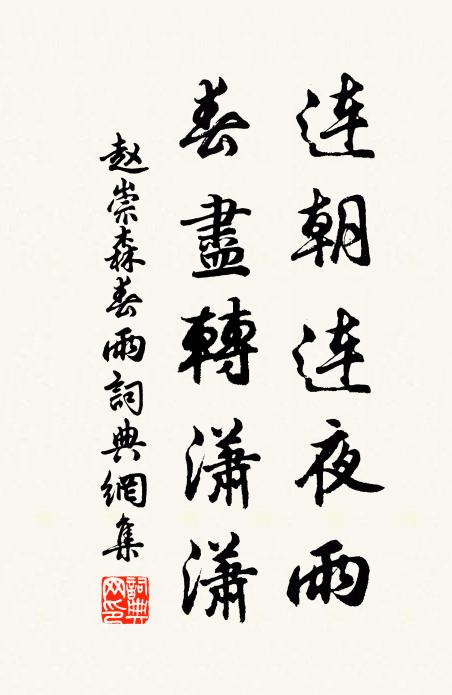 連朝連夜雨
春盡轉瀟瀟
赵崇森春雨詞典網集
詞典网印